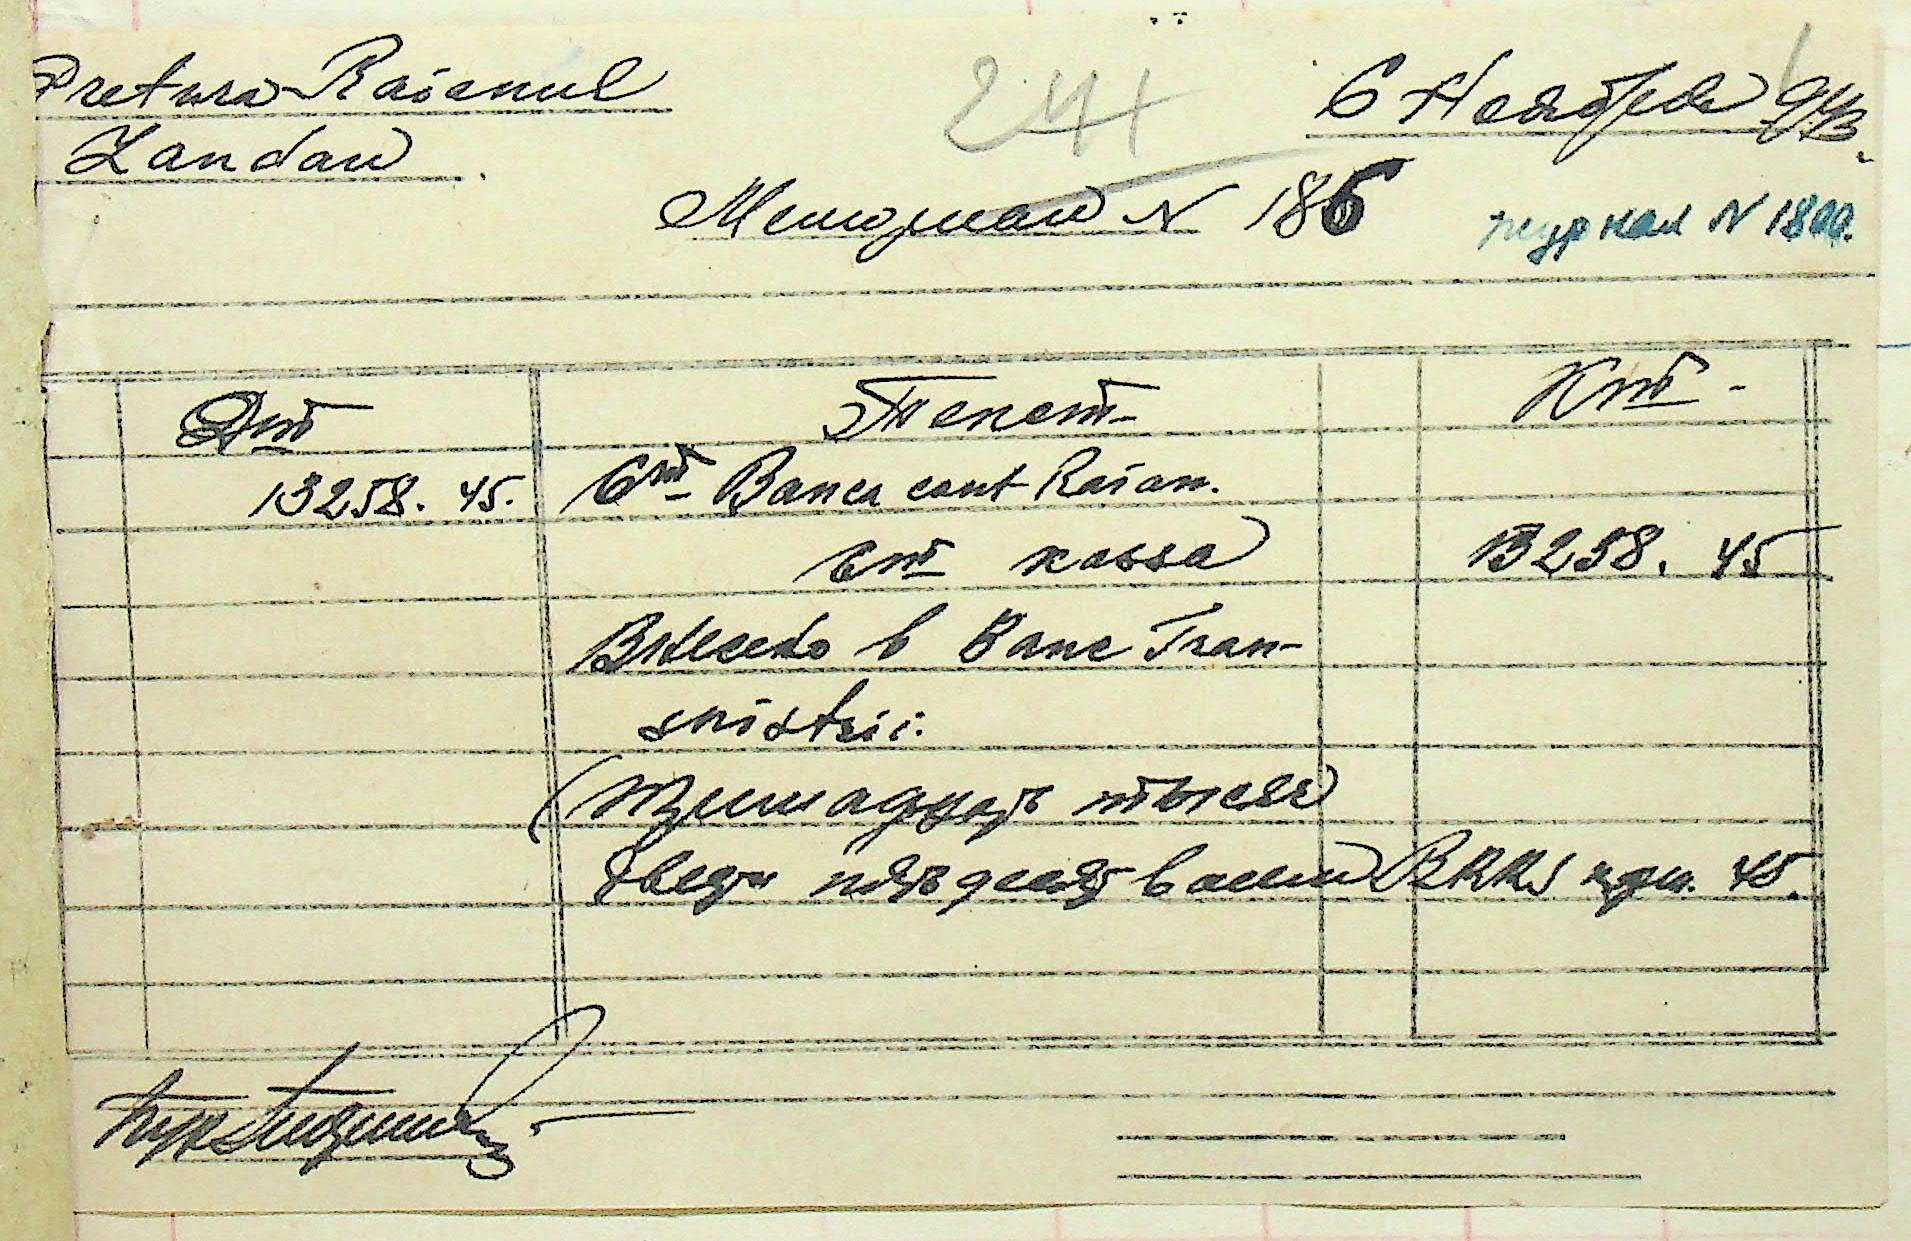 Pretura Raionul
Landau
241
6 Ноября 943.
Мемориал N 186
журнал N 1800.
Дт
Текст
Кт
13258. 45.
Ст Banca cont Raion.
Ст касса
13258. 45
Внесено в Banc Tran-
snistrii.
(тринадцать тысяч
двести пятьдесят восемь RKKS пфен. 45.